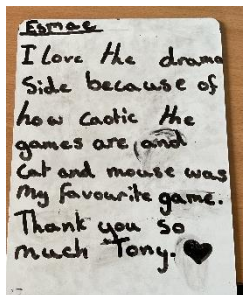 Esmae
I love the drama
Side because of
how caotic the
games are and
Cat and mouse was
My favourite game.
Thank you so
much Tony.